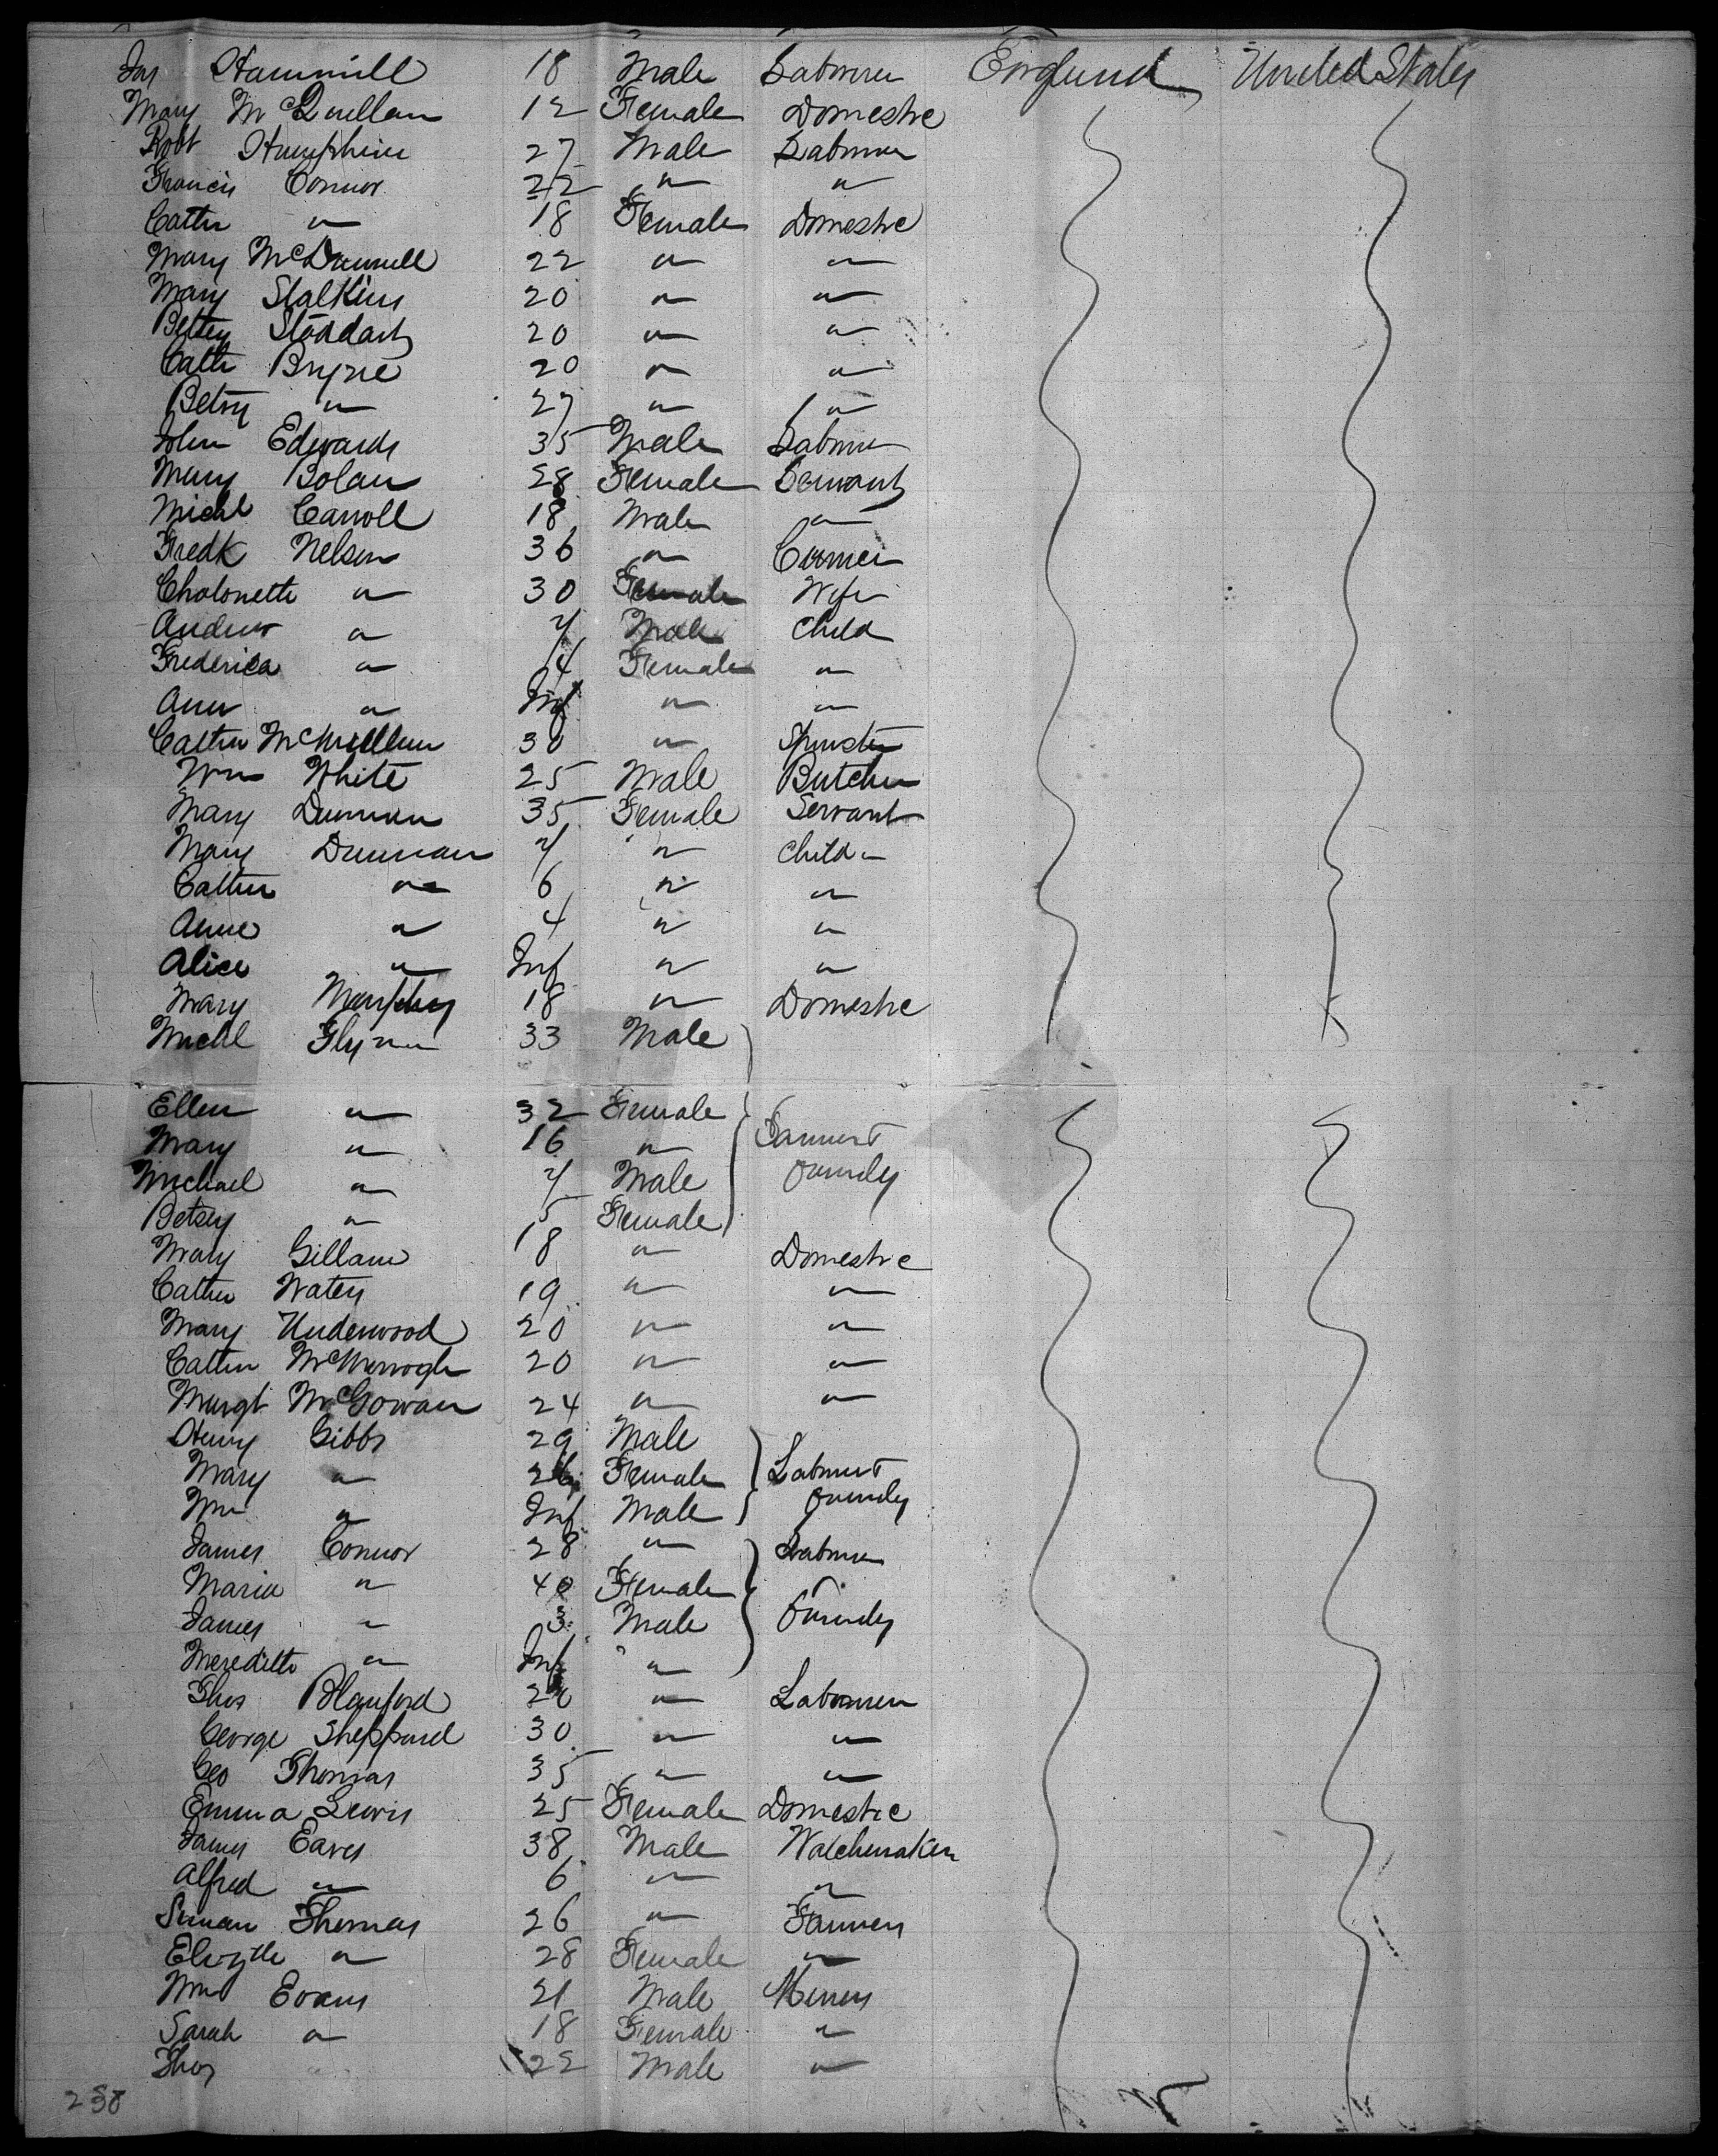 Jas Hammill 18 Male Labourer England United States
Mary McQuillan 12 Female Domestic
Robt Humphries 27 Male Labourer
Francis Connor 22 " "
Cathn " 18 Female Domestic
Mary McDonnell 22 " "
Mary Stalkins 20 " "
Betsey Stoddart 20 " "
Cathn Bryne 20 " "
Betsy " 27 " "
John Edwards 35 Male Labourer
Mary Bolan 28 Female Servant
Michl Carroll 18 Male "
Fredk Nelson 36 "
Cholonette " 30 Female Wife
Andrew " 7 Male Child
Frederica " 4 Female "
Ann " Inf " "
Cathn McMullen 30 " Spinster
Wm White 25 Male Butcher
Mary Dunnan 35 Female Servant
Mary Dunnan 7 " Child
Cathn " 6 " "
Anne " 4 " "
Alice " Inf " "
Mary Murphy 18 " Domestic
Michl Flynn 33 Male
Ellen " 32 Female
Mary " 16 " Farmer &
Michael " 7 Male Family
Betsey " 5 Female
Mary Gillam 18 " Domestic
Cathn Waters 19 " "
Mary Underwood 20 " "
Cathn McMurrogh 20 " "
Margt McGowan 24 " "
Henry Gibbs 29 Male
Mary " 26 Female Labourer &
Wm " Inf Male Family
James Connor 28 " Labourer
Maria " 40 Female &
James " 3 Male Family
Meredith " Inf "
Thos Blanford 20 " Labourer
George Sheppard 30 " "
Geo Thomas 35 " "
Emma Lewis 25 Female Domestic
James Eaves 38 Male Watchmaker
Alfred " 6 " "
Thomas 26 " Farmer
Elizth " 28 Female "
Wm Evans 21 Male Miner
Sarah " 18 Female "
Thos 22 Male "
238